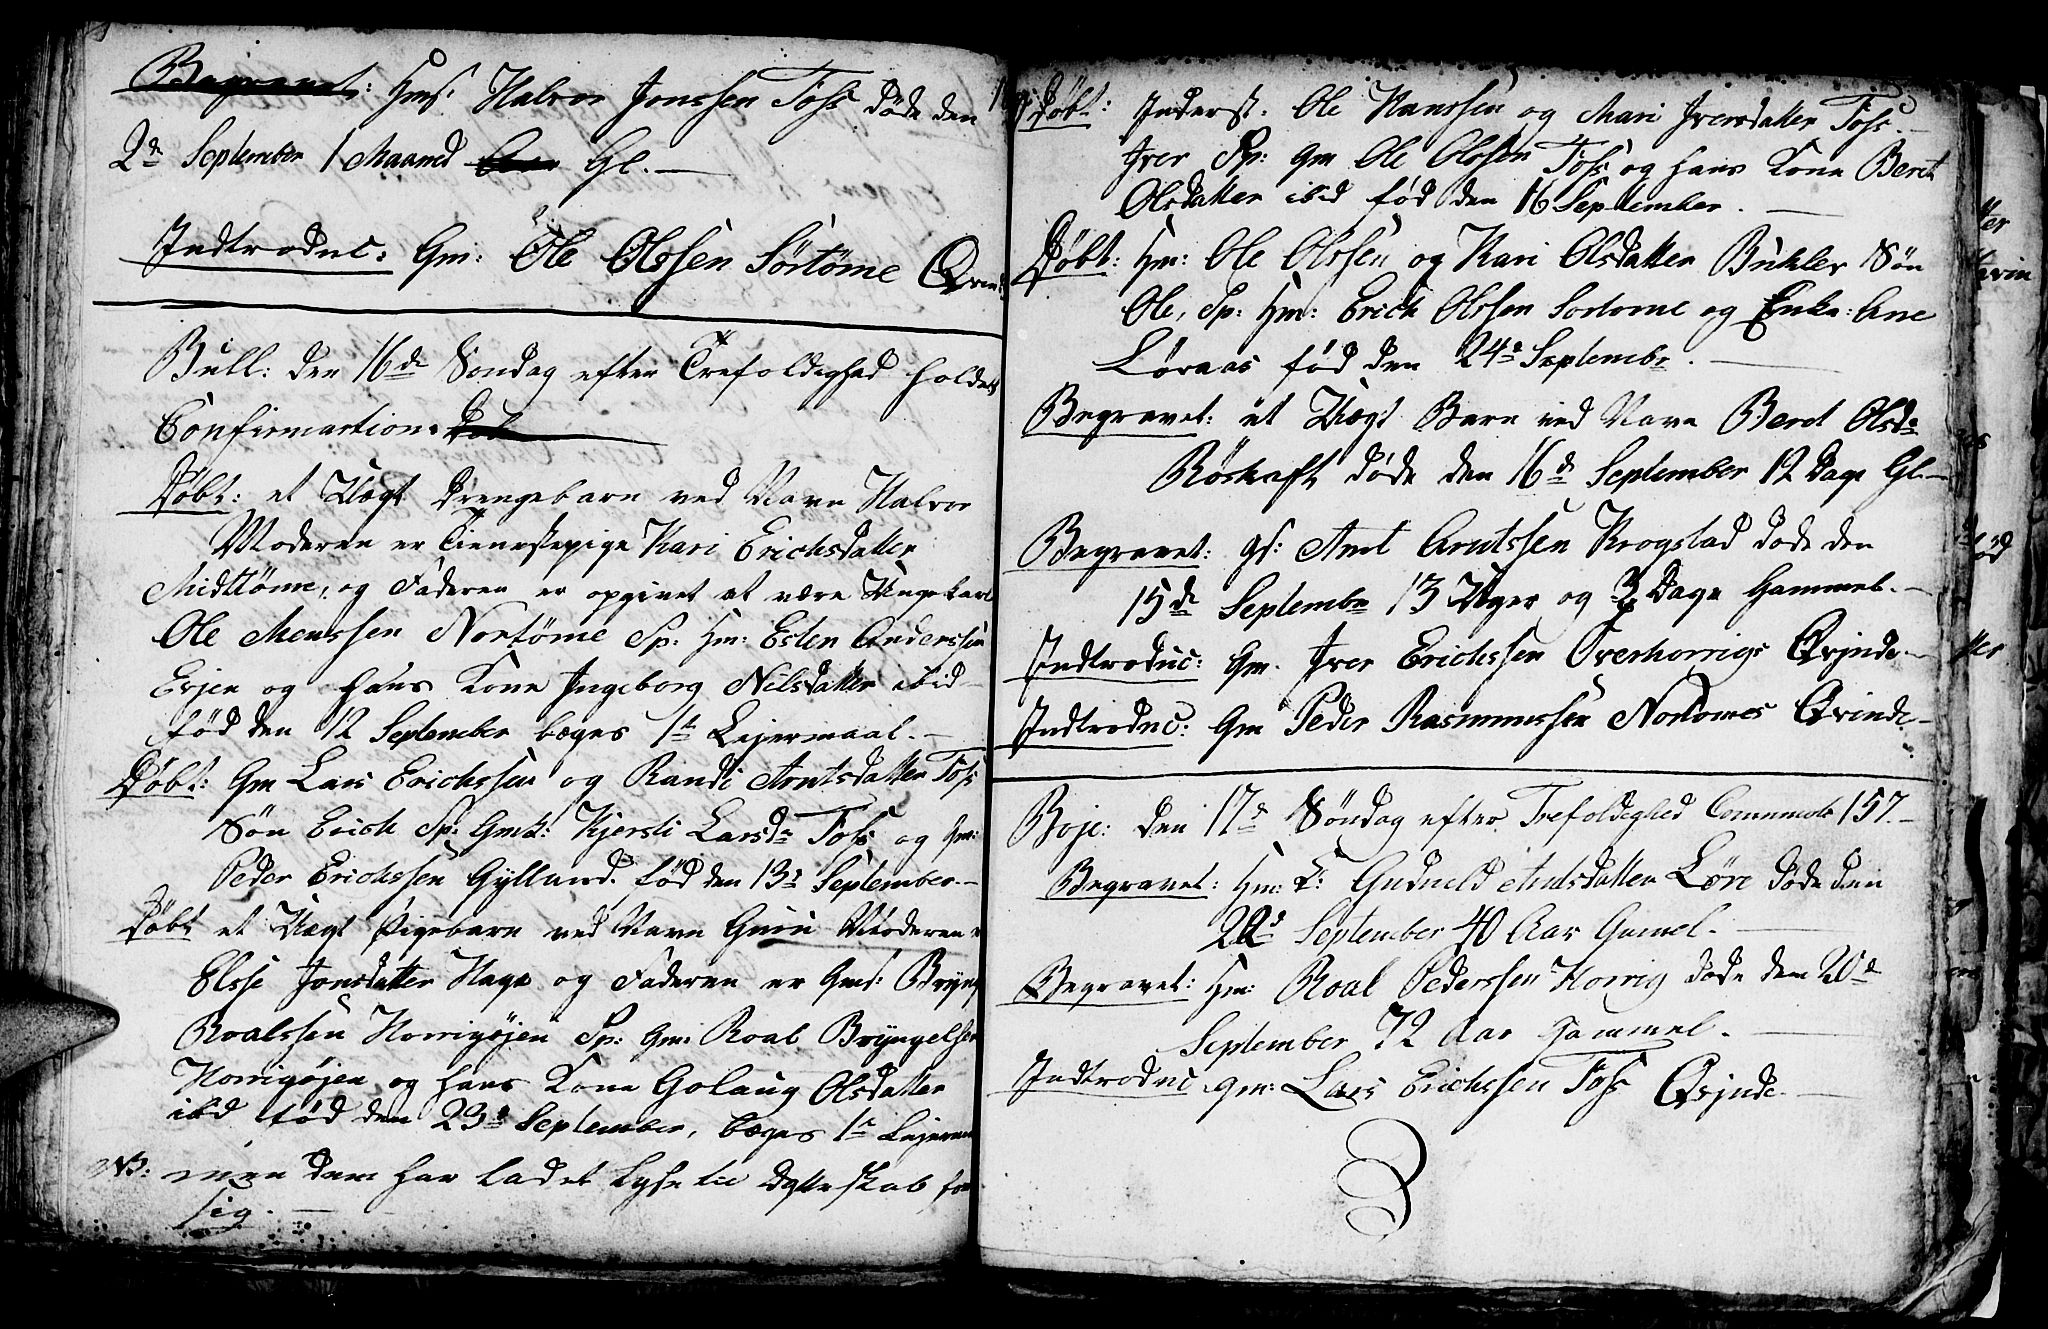 Begravet: Hms: Halvor Jonssen Foss døde den
2de September 1 Maaned Gl.
Indtroduc: Gm: Ole Olssen Sörtöme Qvinde
Bull: den 16de Søndag efter Trefoldighed holdet
Confirmation.
Døbt: et Uægt Drengebarn ved Navn Halvor
Moderen er Tienestepige Kari Erichsdatter
Midttöme, og Faderen er opgivet at være Ungekarl
Ole Menssen Nortöme Sp: Hm: Esten Anderssen
Evjen og hans Kone Ingeborg Nilsdatter ibid
fød den 12 September bæges 1te Lejermaal.
Døbt: Gm Lars Erichssen og Randi Arntsdatter Foss
Søn Erich Sp: Gmk: Kjersti Larsdr Foss og Gm:
Peder Erichssen Gylland. fød den 13de September.
Døbt et Uægt Pigebarn ved Navn Guru Moderen
Elsse Jonsdatter Hage og Faderen er Gms: Bryngel
Roalssen Horrigøjen Sp: Gm: Roal Bryngelsen
Horrigøjen og hans Kone Golaug Olsdatter
ibid fød den 23de September, bæges 1te Lejerm
NB: men Dem har ladet lyse til Ægteskab for
sig.
Døbt: Inderst. Ole Hanssen og Mari Iversdatter Foss.
Iver Sp: Gm Ole Olssen Foss og hans Kone Beret
Olsdatter ibid fød den 16 September.
Døbt: Hm: Ole Olssen og Kari Olsdatter Bükler Søn
Ole, Sp: Hm: Erich Olssen Sortome og Enke: Ane
Løraas fød den 24de Septembr.
Begravet: et Uægt Barn ved Navn Beret Olsdr
Røskaft døde den 16de September 12 Dage Gl.
Begravet: gs: Arnt Arntssen Krogstad døde den
15de Septembr 13 Uger og 3 Dage Gammel.
Indtroduc: Gm. Iver Erichssen Overhorrigs Qvinde.
Indtroduc: Gm Peder Rasmussen Nortomes Qvinde
Boje: den 17de Søndag efter Trefoldighed Communic 157.
Begravet: Hm: K: Gudneld Arntsdatter Løre døde den
20de September 40 Aar Gamel.
Begravet: Hm: Roal Pederssen Horrig døde den 20de
September 72 Aar Gammel.
Indtroduc. Gm: Lars Erichssen Foss Qvinde.